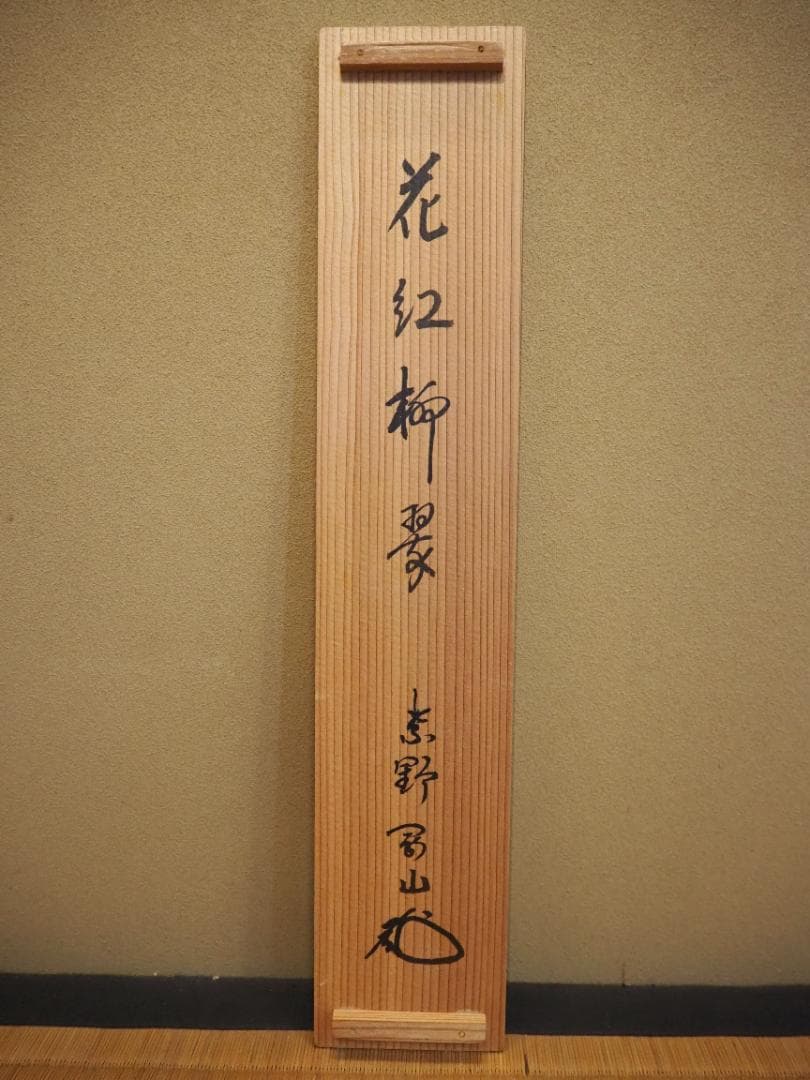 花紅柳翠 紫野 寛山